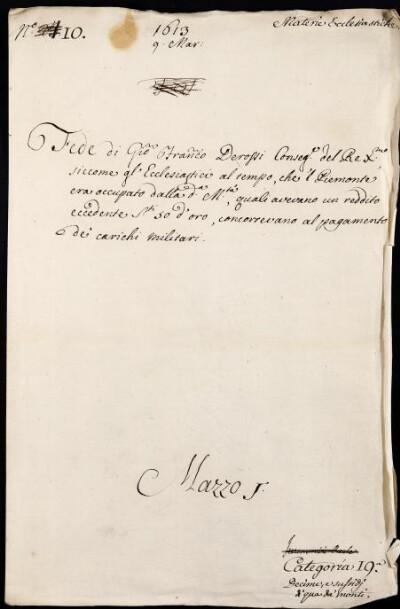 N.° 10.
1613
9. Mar:
Materie Ecclesiastiche
Fede di Gio. Franco Derossi Conseg.e del Re X.mo
siccome gl'Ecclesiastici al tempo, che 'l Piemonte
era occupato dalla d.a M.tà, quali avevano un reddito
eccedente s.ti 50 d'oro, concorrevano al pagamento
de' carichi militari.
Mazzo 1.
Categoria 19.a
Decime, e sussidj
di qua da' monti.